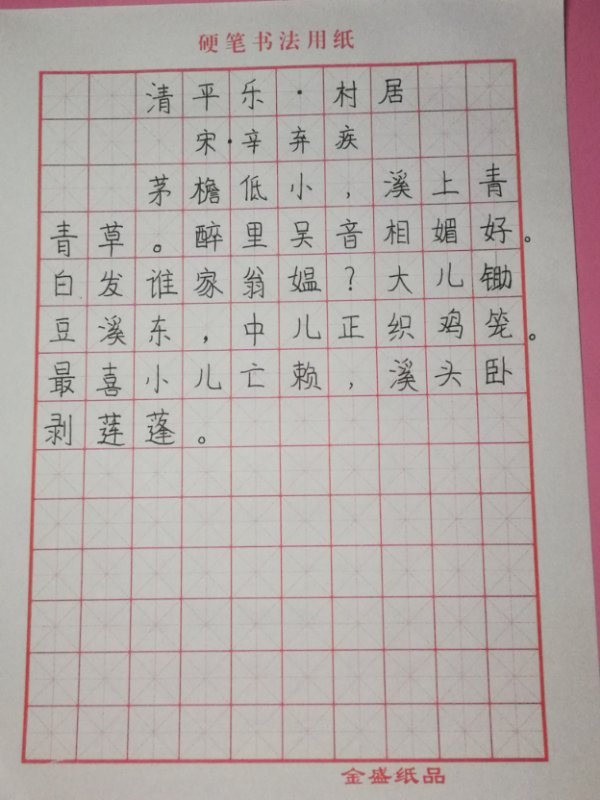 硬笔书法用纸
清平乐·村居
宋·辛弃疾
茅檐低小,溪上青
青草。醉里吴音相媚好。
白发谁家翁媪?大儿锄
豆溪东,中儿正织鸡笼。
最喜小儿亡赖,溪头卧
剥莲蓬。
金盛纸品